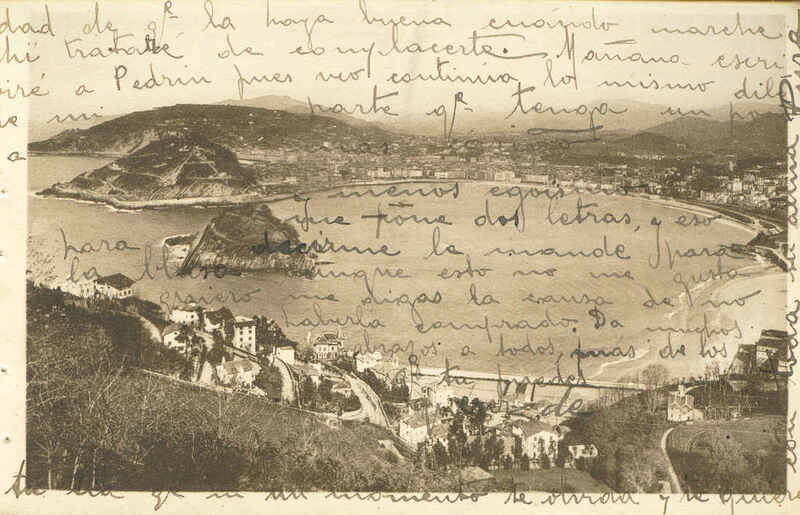 dad de qᵉ la haya buena cuando marche
hi trataré de complacerte. Mañana escri
biré a Pedrin pues veo continua lo mismo dil
e mi parte qᵉ tenga un po
a
y menos egoismo
que pone dos letras, y eso
para decirme le mande para
la blusa aunque esto no me gusta
quiero me digas la causa de no
haberla comprado. Da muchos
abrazos a todos, más de los
qᵉ tu puedes
de
con toda su alma Pura
tu na qᵉ ni un momento te olvida y te quiere